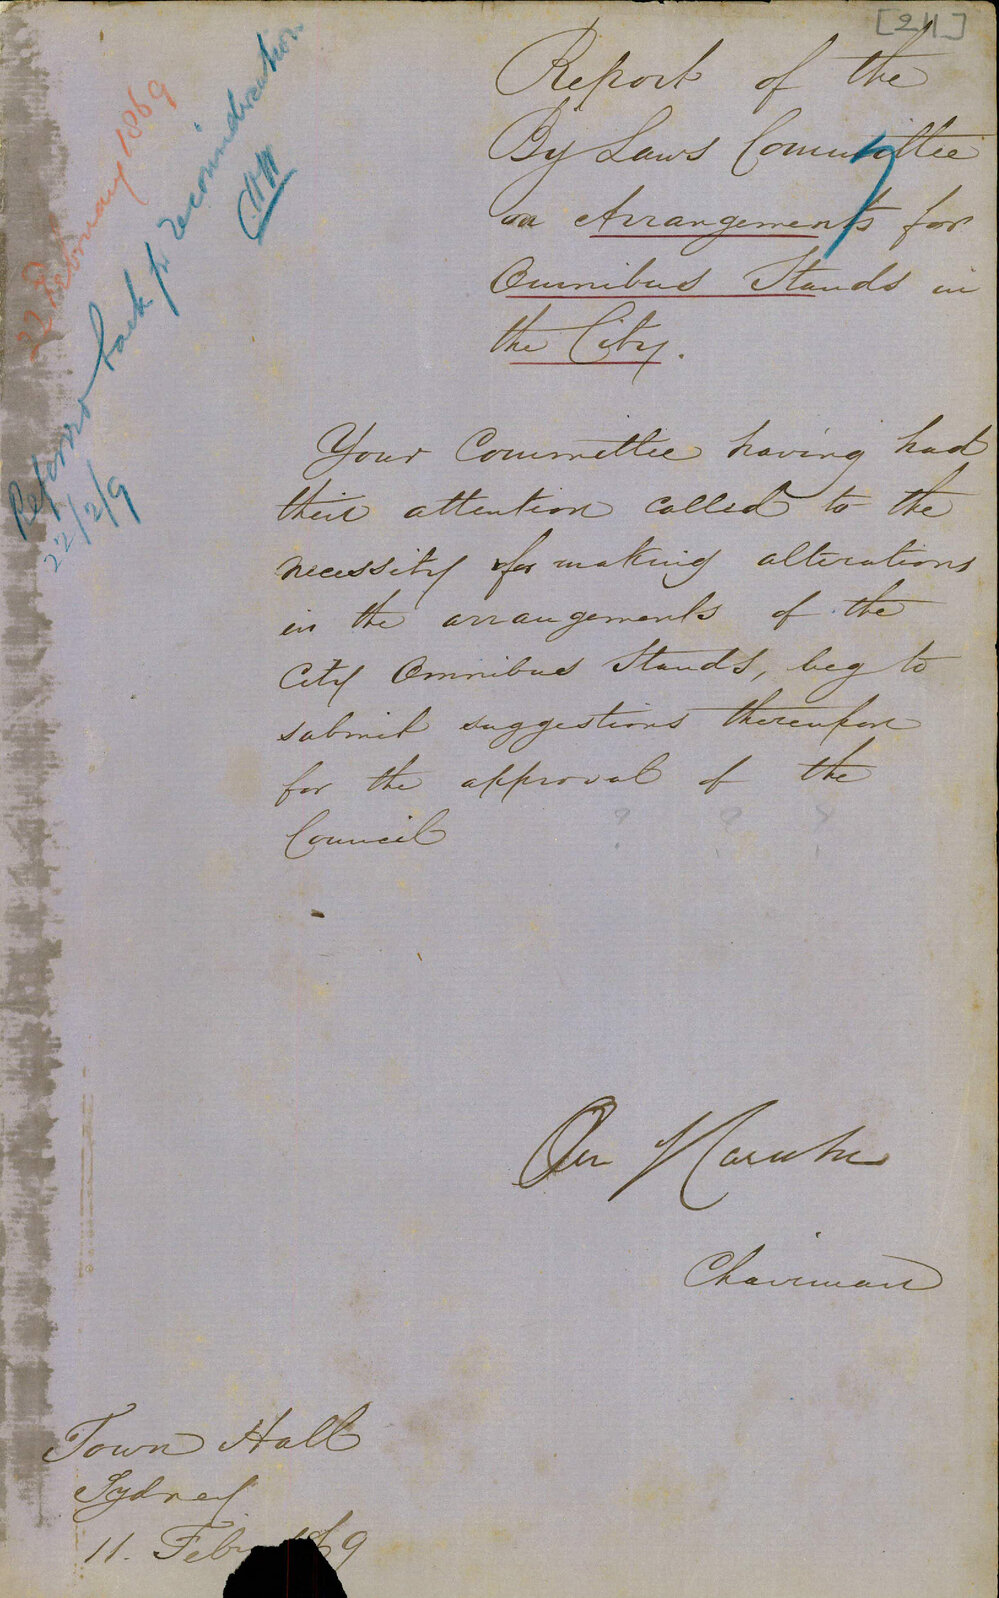 [211]
22 February 1869
Referred back for reconsideration
22/2/9
Report of the
By Laws Committee
on Arrangements for
Omnibus Stands in
the City.
Your Committee having had
their attention called to the
necessity for making alterations
in the arrangements of the
City Omnibus Stands, beg to
submit suggestions thereupon
for the approval of the
Council
Chairman
Town Hall
Sydney
11. Feb 1869